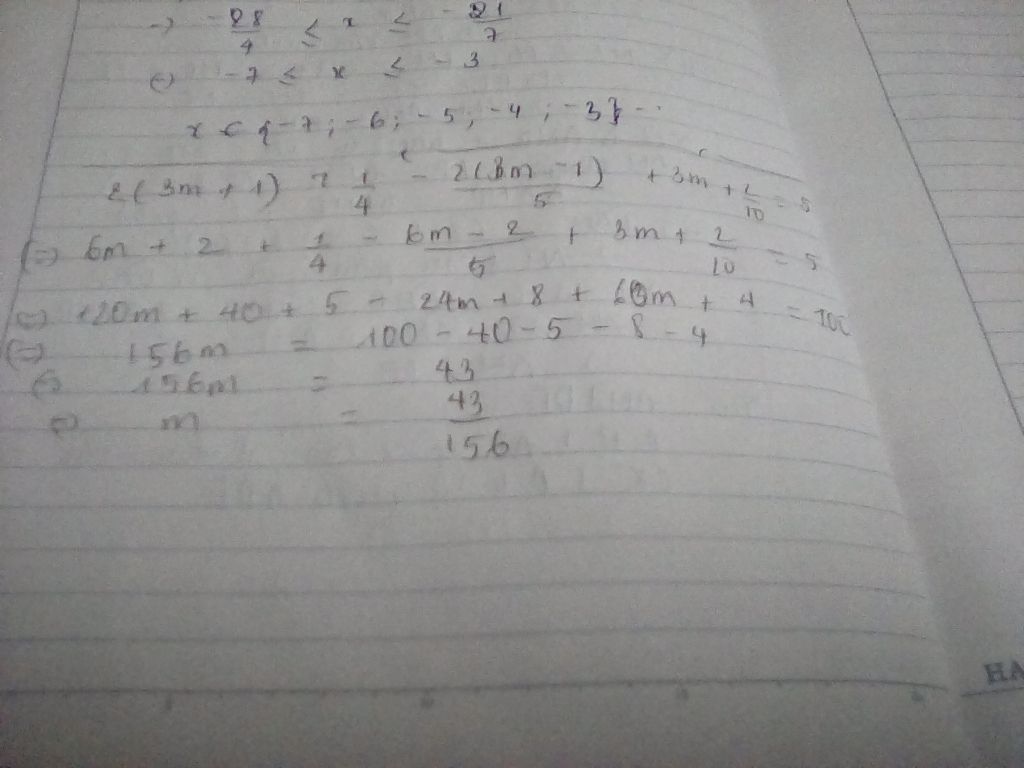 => -28/4 ≤ x ≤ -21/7
<=> -7 ≤ x ≤ -3
x ∈ {-7; -6; -5; -4; -3}
2(3m + 1) + 1/4 - 2(3m - 1)/5 + 3m + 2/10 = 5
<=> 6m + 2 + 1/4 - 6m - 2/5 + 3m + 2/10 = 5
<=> 120m + 40 + 5 - 24m + 8 + 60m + 4 = 100
<=> 156m = 100 - 40 - 5 - 8 - 4
<=> 156m = 43
<=> m = 43/156
HA